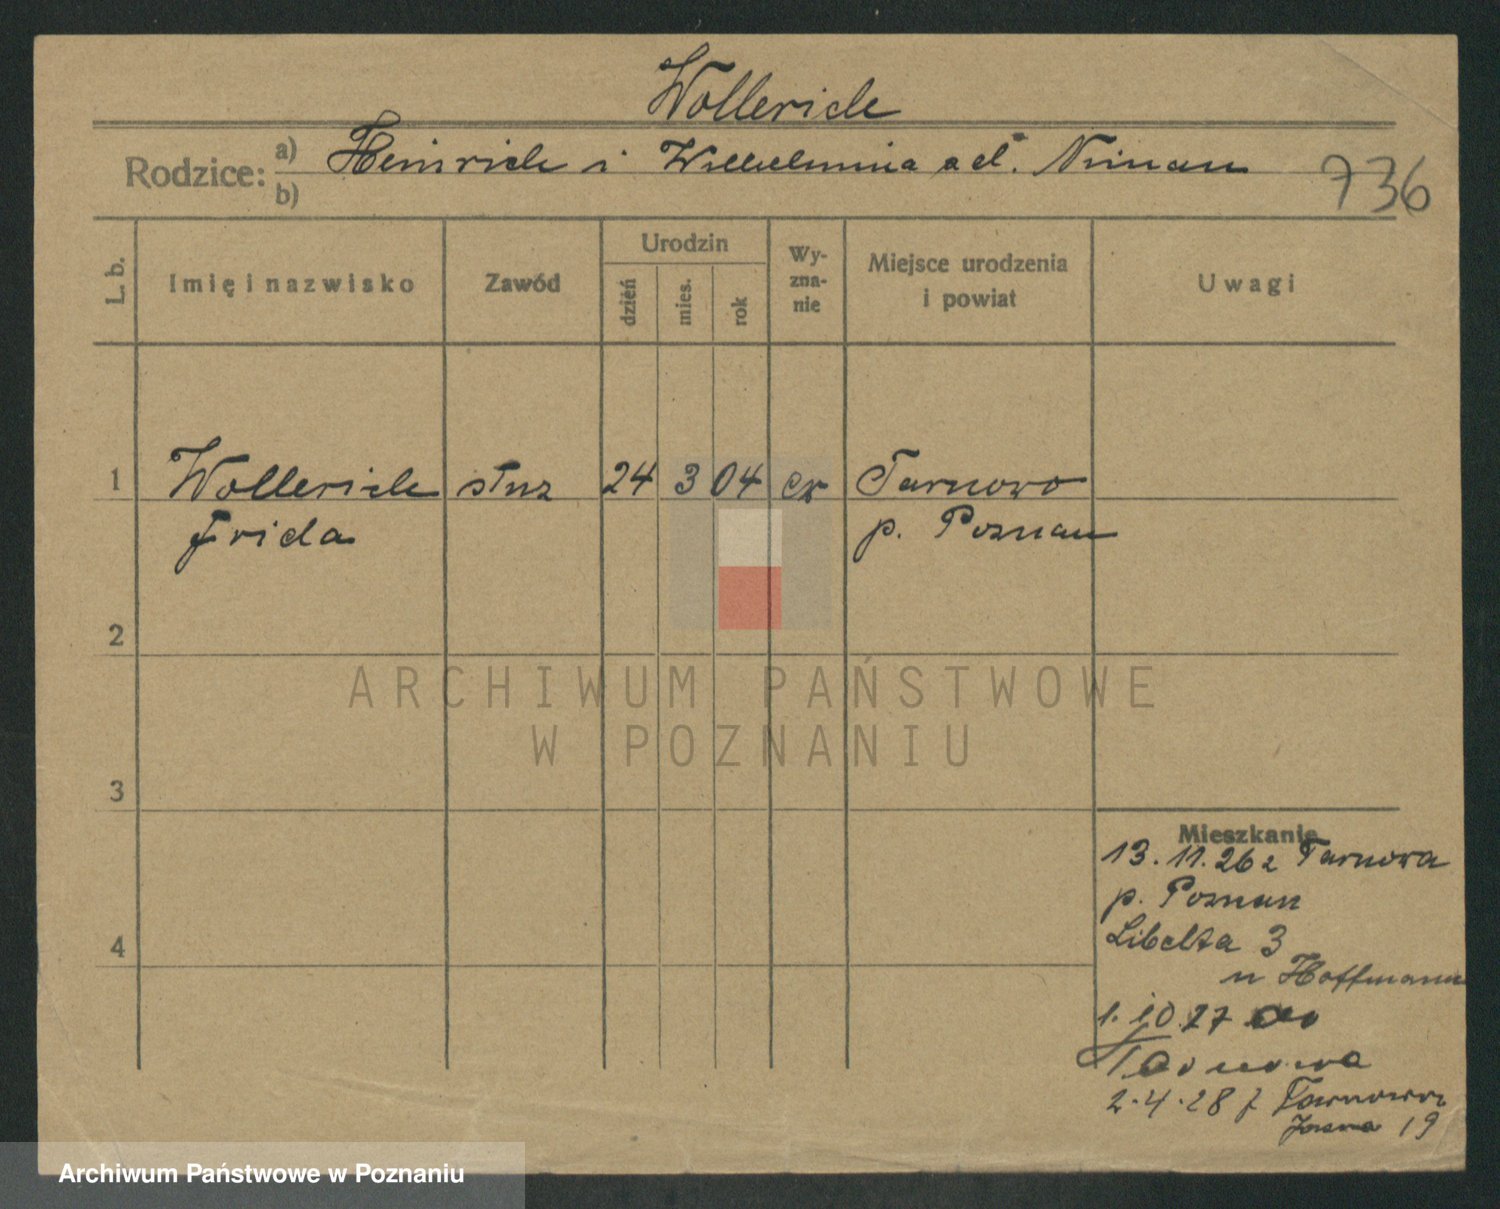 Wollerich
Rodzice: a) Heinrich i Wilhelmina
b)
736
L. b.
Imię i nazwisko
Zawód
Urodzin
dzień
mies.
rok
Wy-
zna-
nie
Miejsce urodzenia
i powiat
Uwagi
1 Wollerich służ 24 3 04 ew Tarnowo
Frida p. Poznan
2
3
4
ARCHIWUM PAŃSTWOWE
W POZNANIU
Mieszkanie
13.11.26 z Tarnowa
p. Poznan
Libelta 3
u Hoffmann
1.10.27 do
Tarnowa
2.4.28 z Tarnowa
Jasna 19
Archiwum Państwowe w Poznaniu